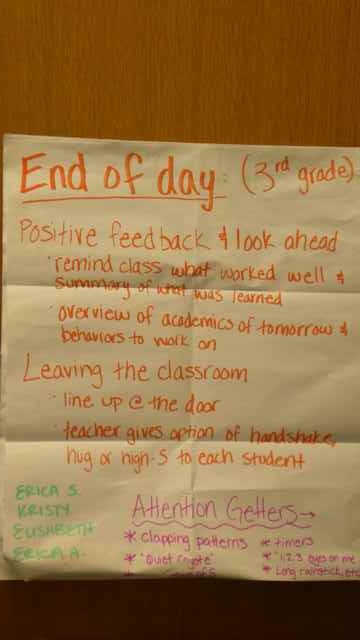 End of day: (3rd grade)
Positive feedback & look ahead
· remind class what worked well &
summary of what was learned
· overview of academics of tomorrow &
behaviors to work on
Leaving the classroom
· line up @ the door
· teacher gives option of handshake,
hug or high-5 to each student
ERICA S.
KRISTY
ELISHBETH
ERICA A.
Attention Getters→
* clapping patterns
* "Quiet Coyote"
* timers
* "1,2,3 eyes on me
* Long rainstick, etc